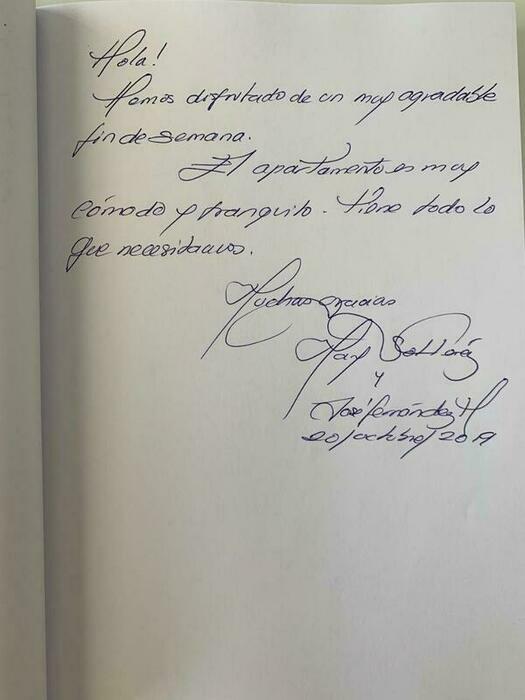 Hola!
Hemos disfrutado de un muy agradable
fin de semana.
El apartamento es muy
cómodo y tranquilo. Tiene todo lo
que necesitamos.
Muchas gracias
y
José Fernández M
20/octubre/2019